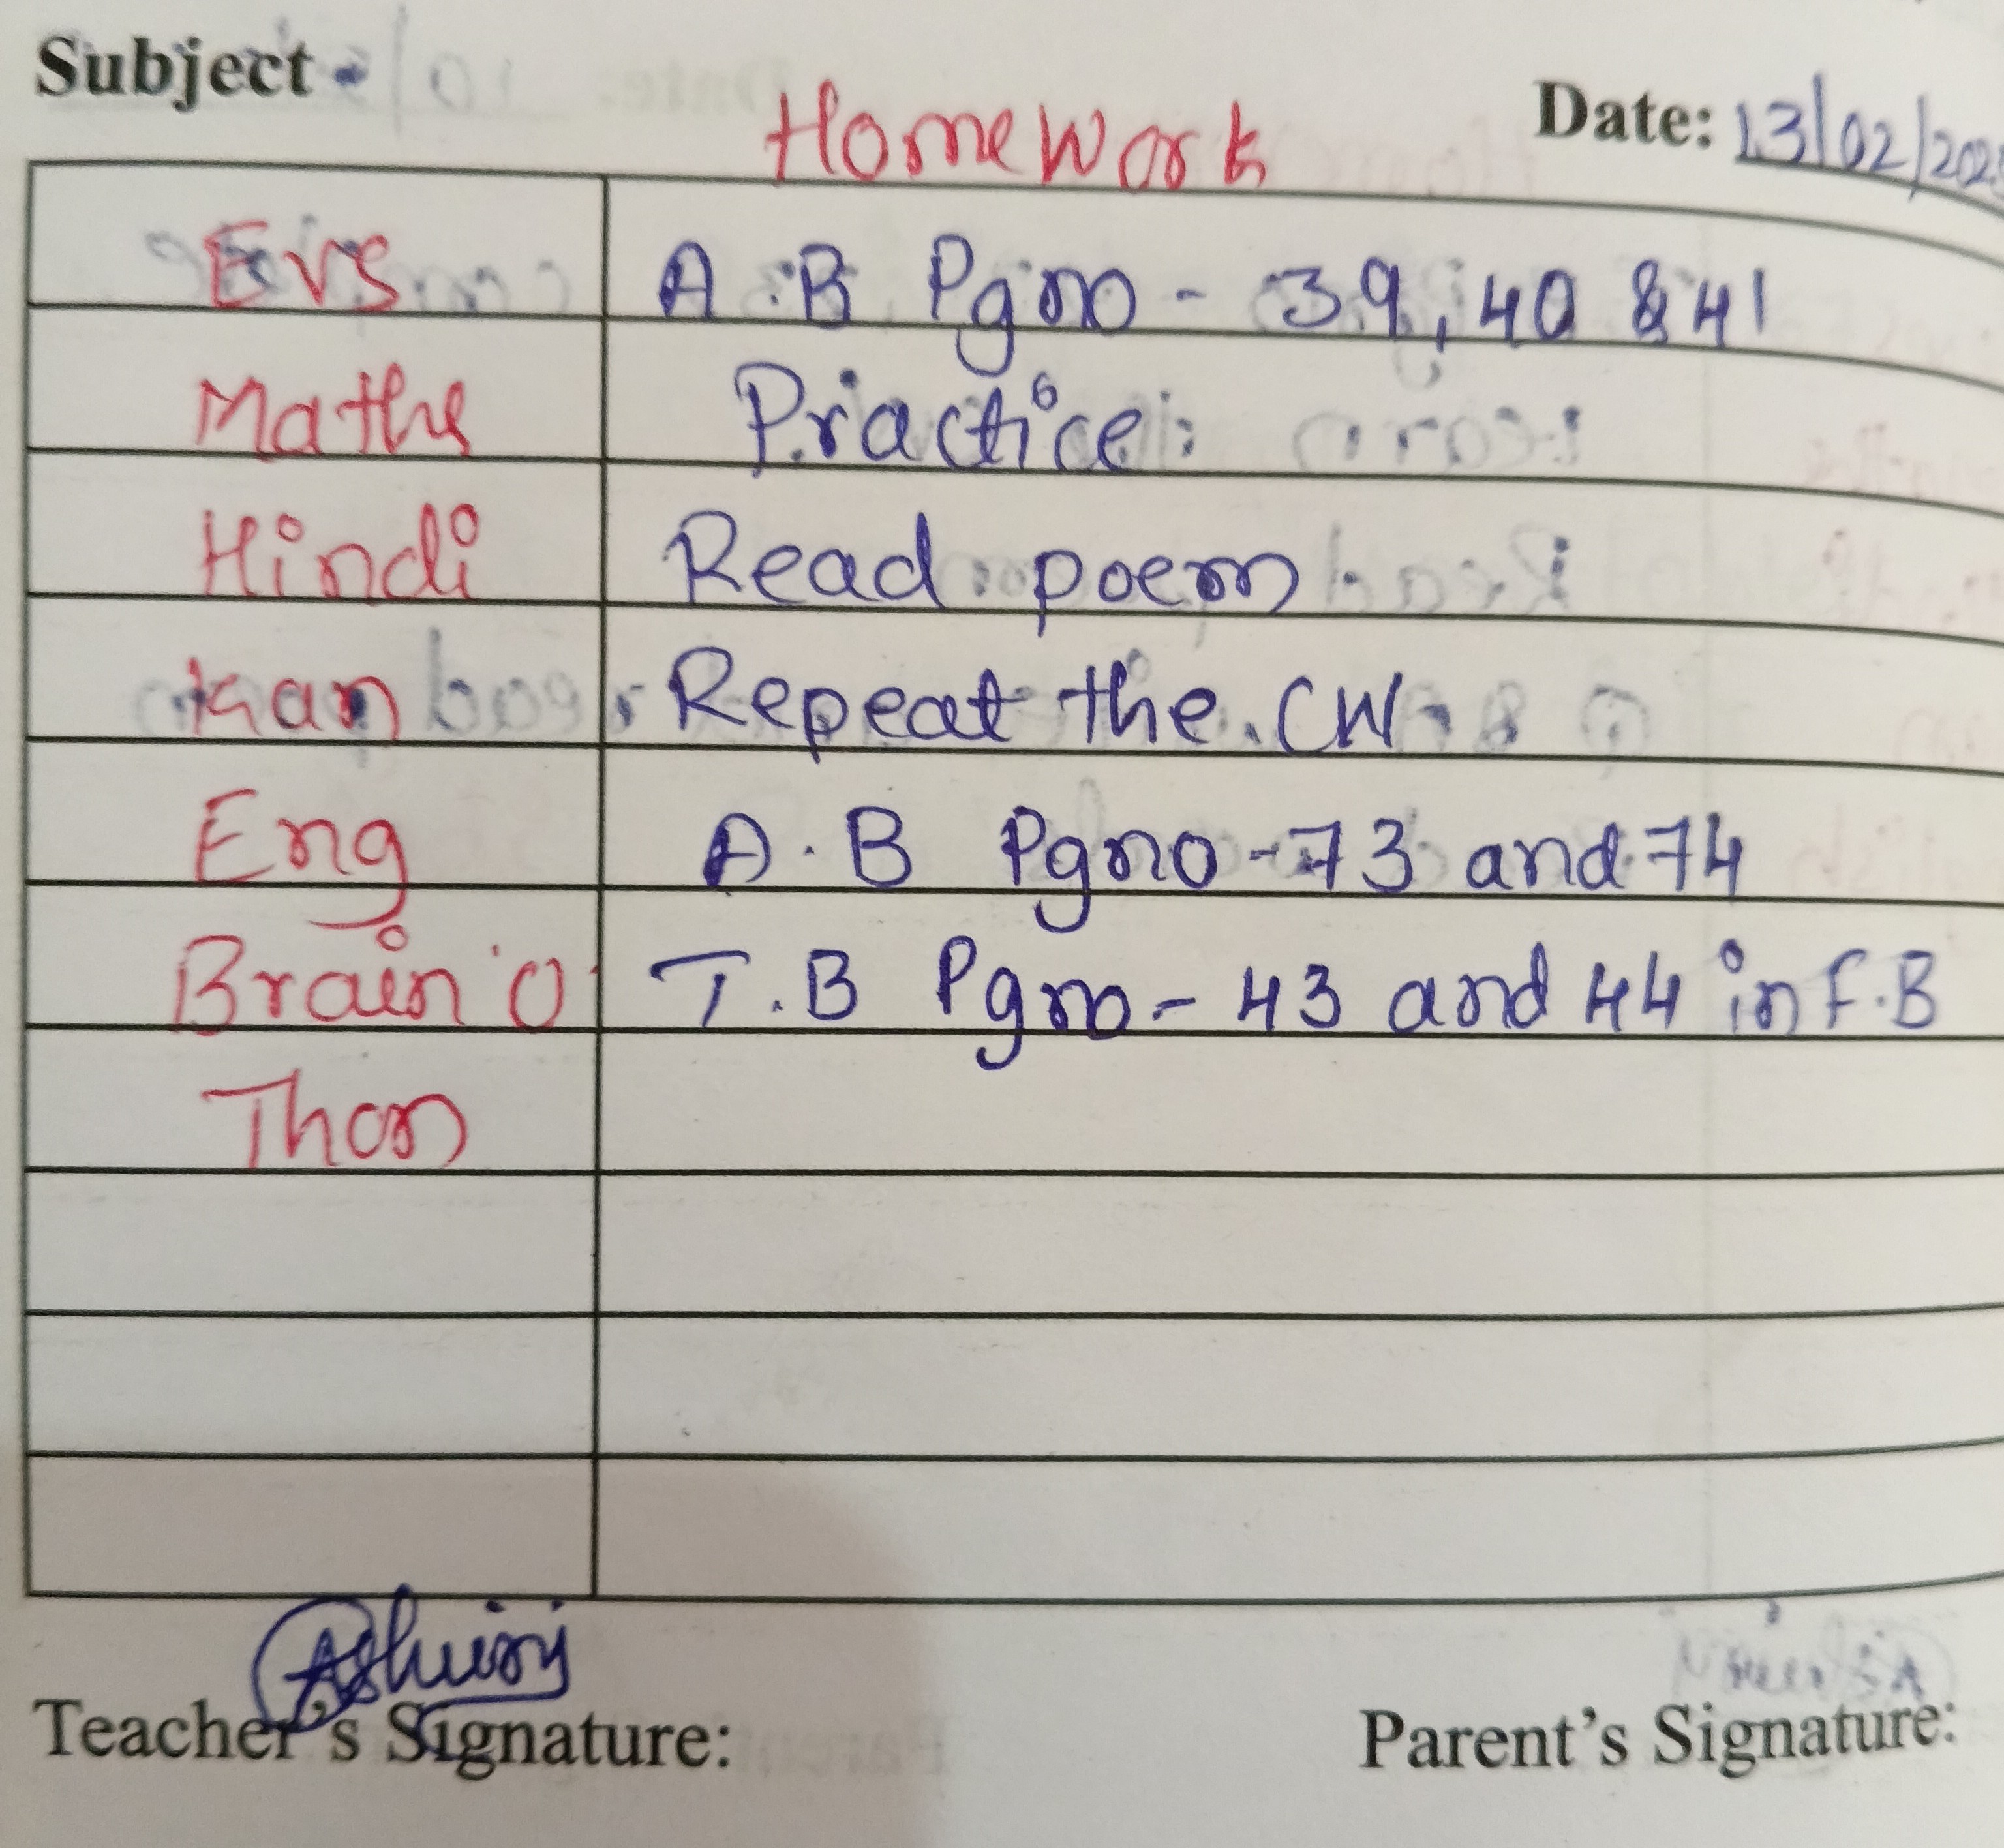 Subject Date: 13/02/202
HomeWork
Evs A.B Pgno - 39, 40 & 41
Maths Practice
Hindi Read poem
Kan Repeat the CW
Eng A.B Pgno - 73 and 74
Brain O T.B Pgno - 43 and 44 in F.B
Thon
Ashwini
Teacher's Signature: Parent's Signature: